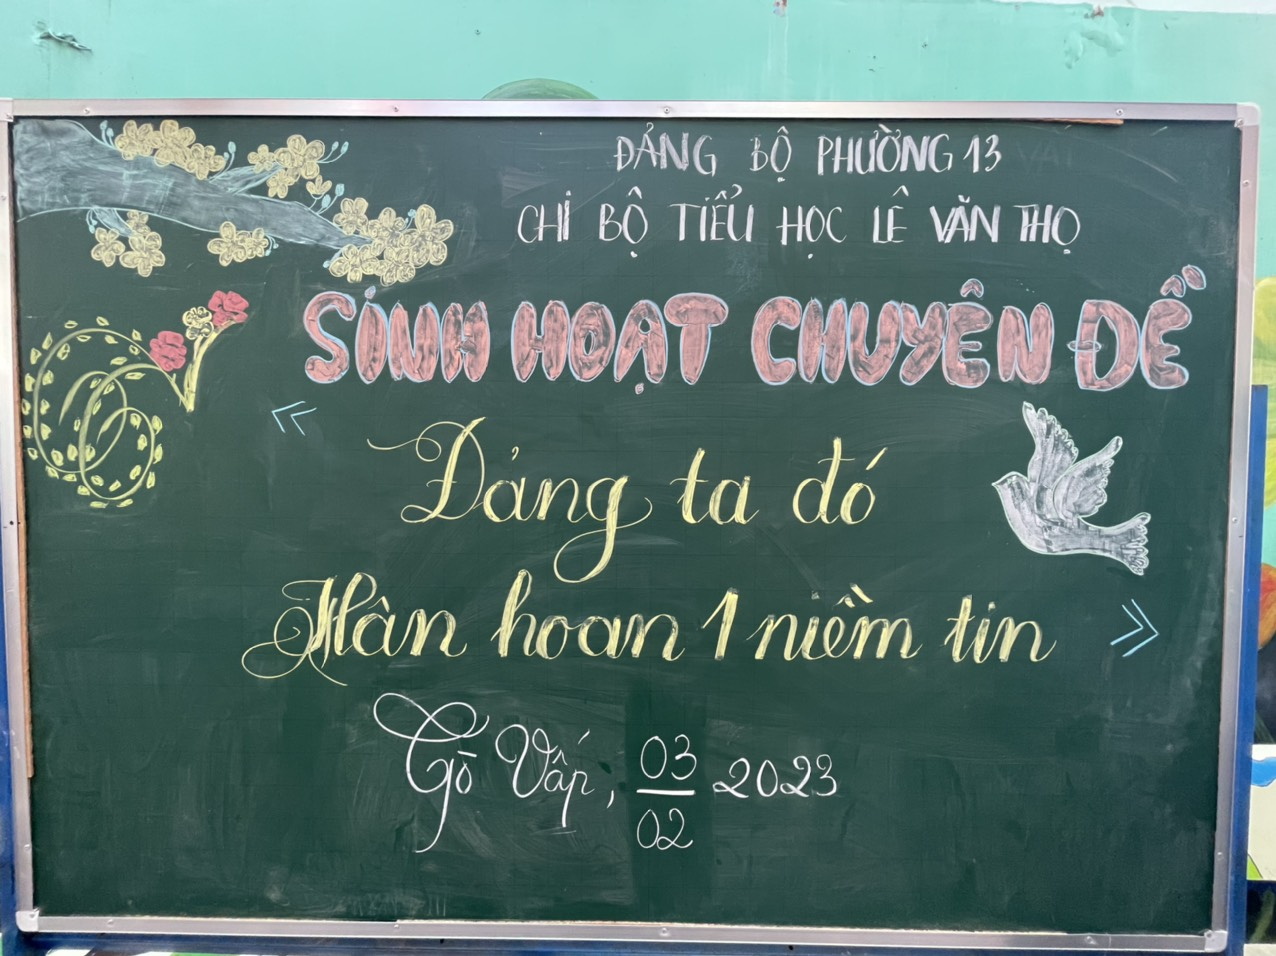 ĐẢNG BỘ PHƯỜNG 13
CHI BỘ TIỂU HỌC LÊ VĂN THỌ
SINH HOẠT CHUYÊN ĐỀ
« Đảng ta đó
Hân hoan 1 niềm tin »
Gò Vấp, 03/02 2023